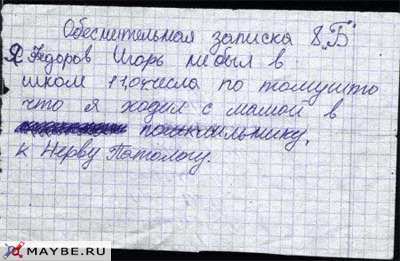 Обеснительная записка 8 „Б"
Я Федоров Игорь не был в
школ 11.04 числа по томушто
что я ходил с мамой в
к Нерву Патологу.
MAYBE.RU